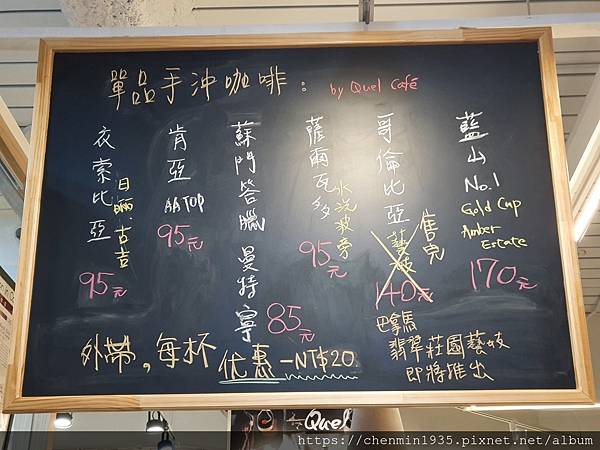 單品手沖咖啡：
by Quel Café
衣索比亞
日曬.古吉
95元
肯亞
AA TOP
95元
蘇門答臘 曼特寧
85元
薩爾瓦多
水洗波旁
95元
哥倫比亞
藝妓
售完
140元
巴拿馬
翡翠莊園藝妓
即將推出
藍山
No.1
Gold Cup
Amber
Estate
170元
外帶，每杯优惠-NT$20
Quel
https://chenmin1935.pixnet.net/album